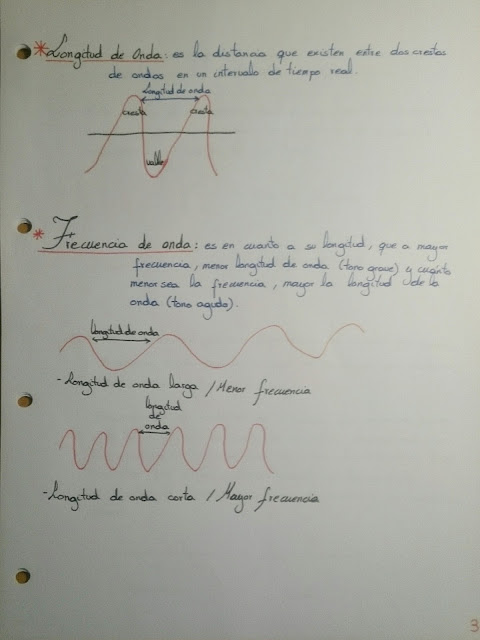 * Longitud de Onda: es la distancia que existen entre dos crestas
de ondas en un intervalo de tiempo real.
Longitud de onda
cresta cresta
valle
* Frecuencia de onda: es en cuanto a su longitud, que a mayor
frecuencia, menor longitud de onda (tono grave) y cuanto
menor sea la frecuencia, mayor la longitud de la
onda (tono agudo).
longitud de onda
- Longitud de onda larga / Menor frecuencia
longitud
de
onda
- Longitud de onda corta / Mayor frecuencia
3